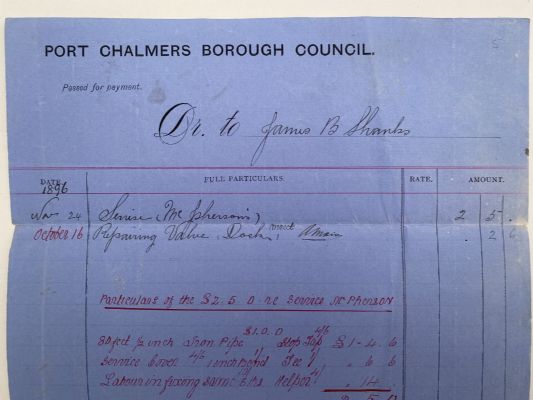 PORT CHALMERS BOROUGH COUNCIL.
Passed for payment.
Dr. to James B Shanks
DATE. FULL PARTICULARS. RATE. AMOUNT.
1896
Nov 24 Service (McPherson's) 2 5 .
October 16 Repairing Valve, Dock, Main 2 6
Particulars of the £2.5.0 re Service McPherson
£1.0.0 4/6
80 feet 1/2 inch Iron Pipe, Stop Tap £1-4.6
Service Cover 4/2 1 inch Bend Tee 6 6
Labour in fixing same Helper 4/ 14
2 5 0